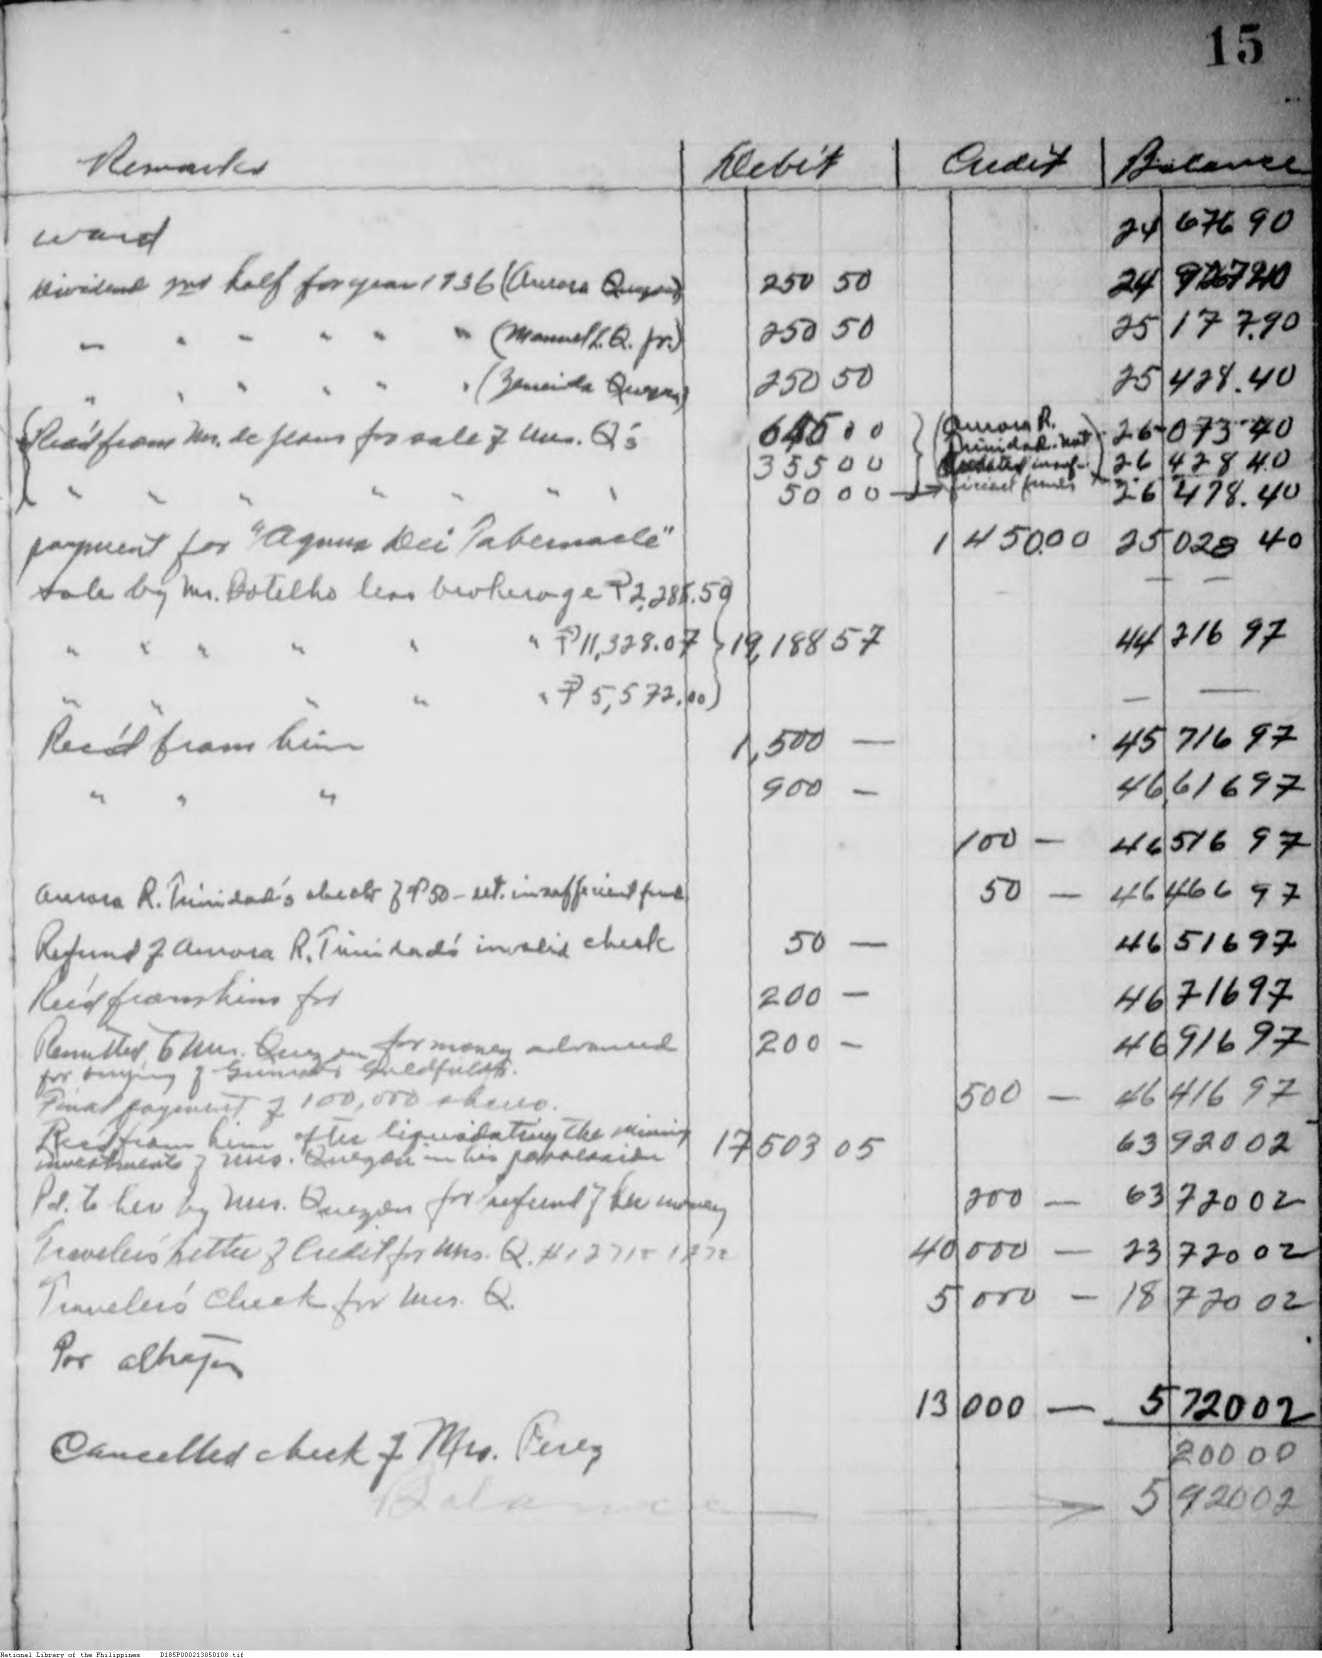 15
Remarks Debit Credit Balance
ward 24 676 90
Dividend 2nd half for year 1936 (Aurora Quezon) 250 50 24 927 40
" " " " " " (Manuel L. Q. jr.) 250 50 25 177.90
" " " " " " (Zeneida Quezon) 250 50 25 428.40
Rec'd from Mr. de jesus for sale of Mrs. Q's 645 00 (Aurora R. 26 073 40
355 00 Trinidad. not insuf- 26 428 40
" " " " " " " 50 00 ficient funds) 26 478.40
payment for "Agnus Dei Tabernacle" 1 450.00 25 028 40
sale by Mr. Botelho less brokerage ₱2,288.50 — —
" " " " " " ₱11,328.07 19,188 57 44 216 97
" " " " " ₱5,572.00 — —
Rec'd from him 1,500 — 45 716 97
" " " 900 — 46,616 97
100 — 46 516 97
Aurora R. Trinidad's check of ₱50 – ret. insufficient fund 50 — 46 466 97
Refund of Aurora R. Trinidad's invalid check 50 — 46 516 97
Rec'd from him for 200 — 46 716 97
Remitted to Mrs. Quezon for money advanced 200 — 46 916 97
for buying of Goldfields.
Final payment of 100,000 shares. 500 — 46 416 97
Rec'd from him after liquidating the mining 17 503 05 63 920 02
investments of Mrs. Quezon in his possession
Pd. to her by Mrs. Quezon for refund of her money 200 — 63 720 02
Traveler's Letter of Credit for Mrs. Q. 40 000 — 23 720 02
Traveler's Check for Mrs. Q. 5 000 — 18 720 02
Por alhajas
13 000 — 5 720 02
Cancelled check of Mrs. Perez 200 00
Balance 5 920 02
National Library of the Philippines D185P000213050108.tif